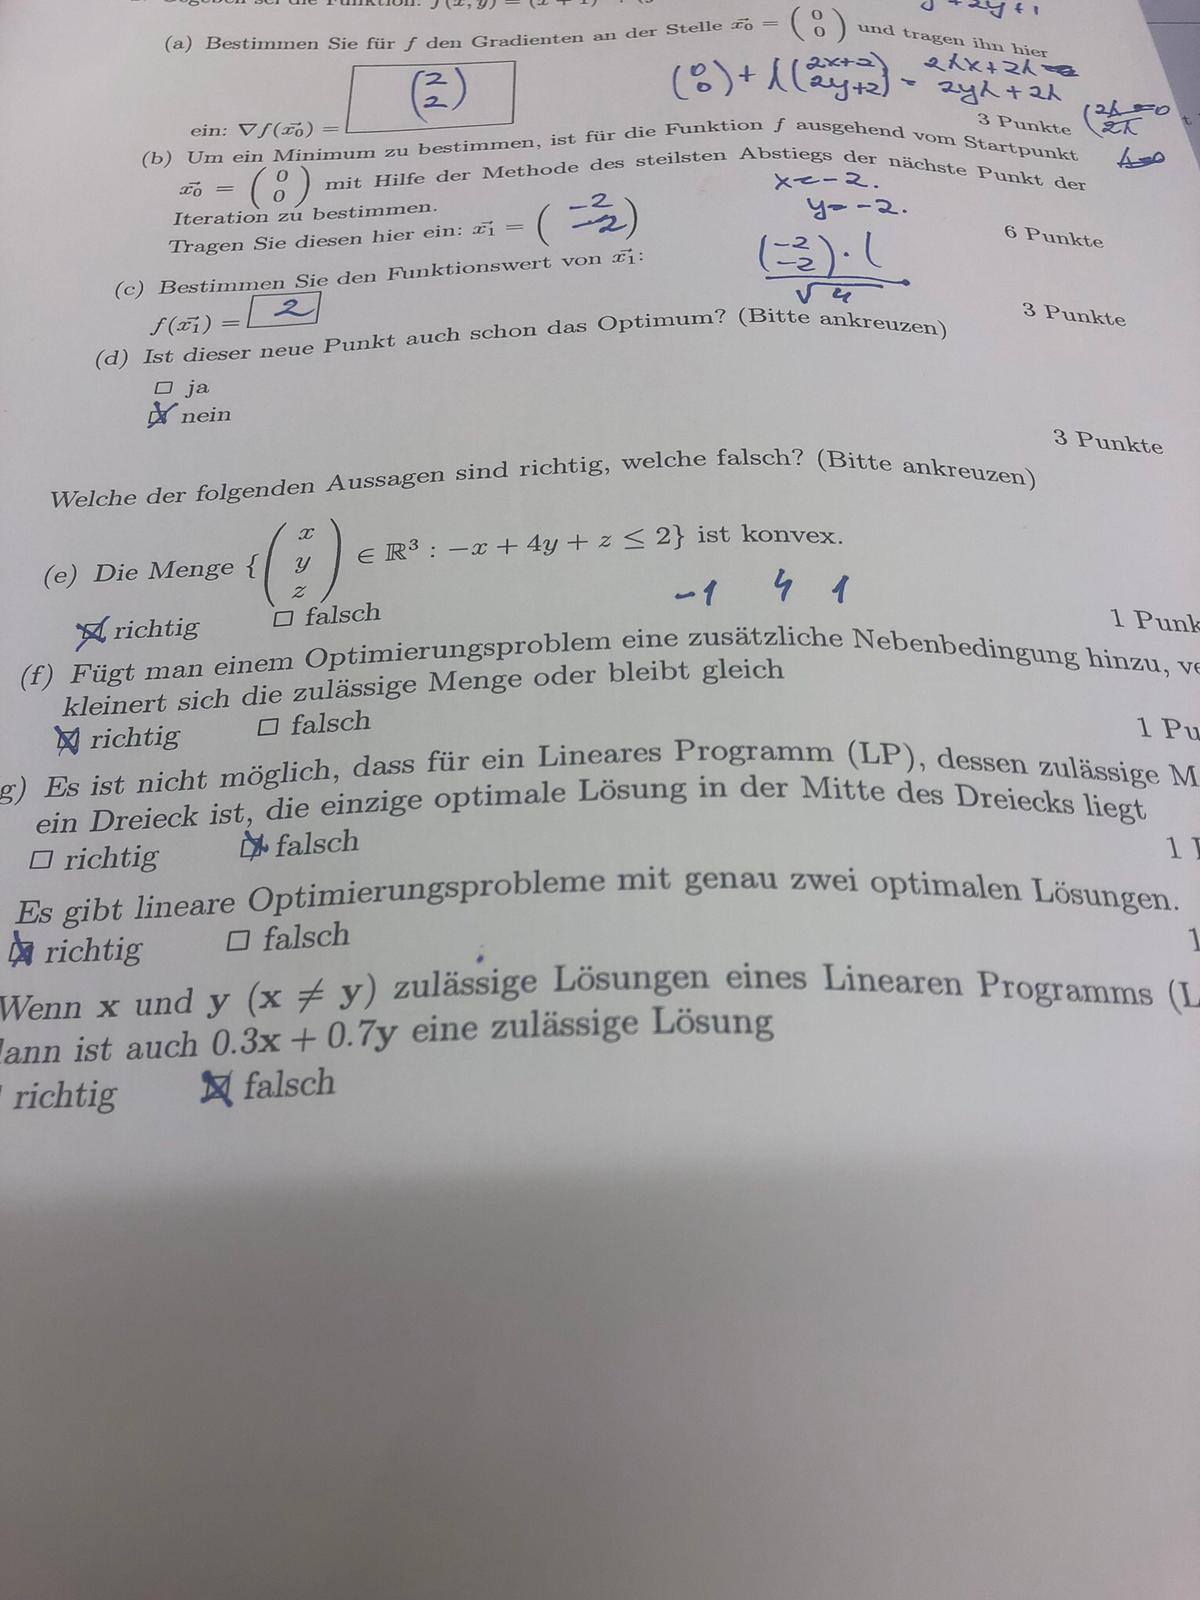 y+2y+1
(a) Bestimmen Sie für f den Gradienten an der Stelle x⃗₀ = (0 0) und tragen ihn hier
ein: ∇f(x⃗₀) = (2 2)
(0 0) + λ(2x+2 2y+2) = 2λx+2λ 2yλ+2λ
3 Punkte
(b) Um ein Minimum zu bestimmen, ist für die Funktion f ausgehend vom Startpunkt
x⃗₀ = (0 0) mit Hilfe der Methode des steilsten Abstiegs der nächste Punkt der
Iteration zu bestimmen.
x=-2.
y=-2.
Tragen Sie diesen hier ein: x⃗₁ = (-2 -2)
6 Punkte
(c) Bestimmen Sie den Funktionswert von x⃗₁:
f(x⃗₁) = 2
3 Punkte
(d) Ist dieser neue Punkt auch schon das Optimum? (Bitte ankreuzen)
☐ ja
☒ nein
3 Punkte
Welche der folgenden Aussagen sind richtig, welche falsch? (Bitte ankreuzen)
(e) Die Menge {(x y z) ∈ ℝ³ : −x + 4y + z ≤ 2} ist konvex.
-1 4 1
☒ richtig ☐ falsch
1 Punk
(f) Fügt man einem Optimierungsproblem eine zusätzliche Nebenbedingung hinzu, ve
kleinert sich die zulässige Menge oder bleibt gleich
☒ richtig ☐ falsch
1 Pu
g) Es ist nicht möglich, dass für ein Lineares Programm (LP), dessen zulässige M
ein Dreieck ist, die einzige optimale Lösung in der Mitte des Dreiecks liegt
☐ richtig ☒ falsch
1
Es gibt lineare Optimierungsprobleme mit genau zwei optimalen Lösungen.
☒ richtig ☐ falsch
1
Wenn x und y (x ≠ y) zulässige Lösungen eines Linearen Programms (L
dann ist auch 0.3x + 0.7y eine zulässige Lösung
richtig ☒ falsch